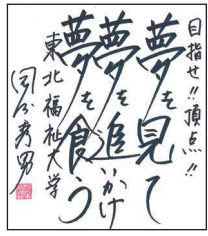 目指せ!!頂点!!
夢を見て
夢を追いかけ
夢を食う
東北福祉大学